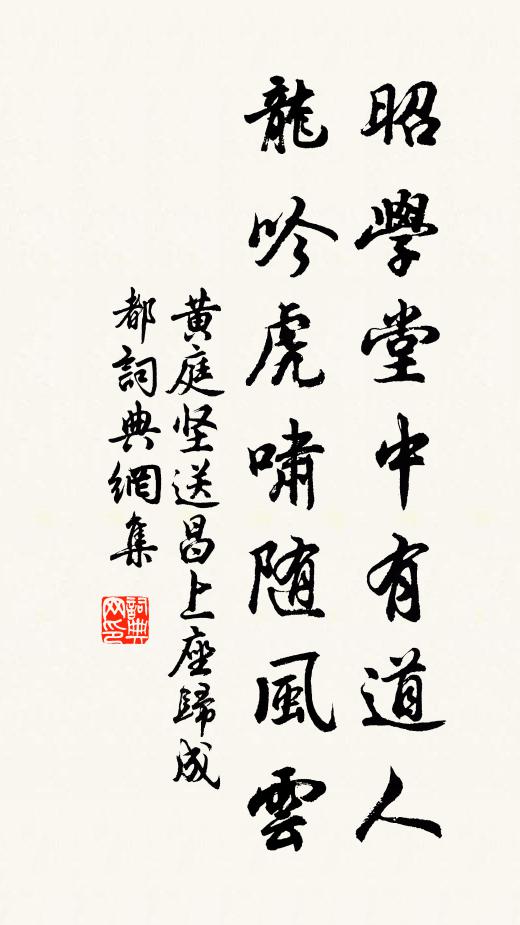 昭學堂中有道人
龍吟虎嘯随風雲
黄庭坚送昌上座歸成
都詞典網集
詞典网印